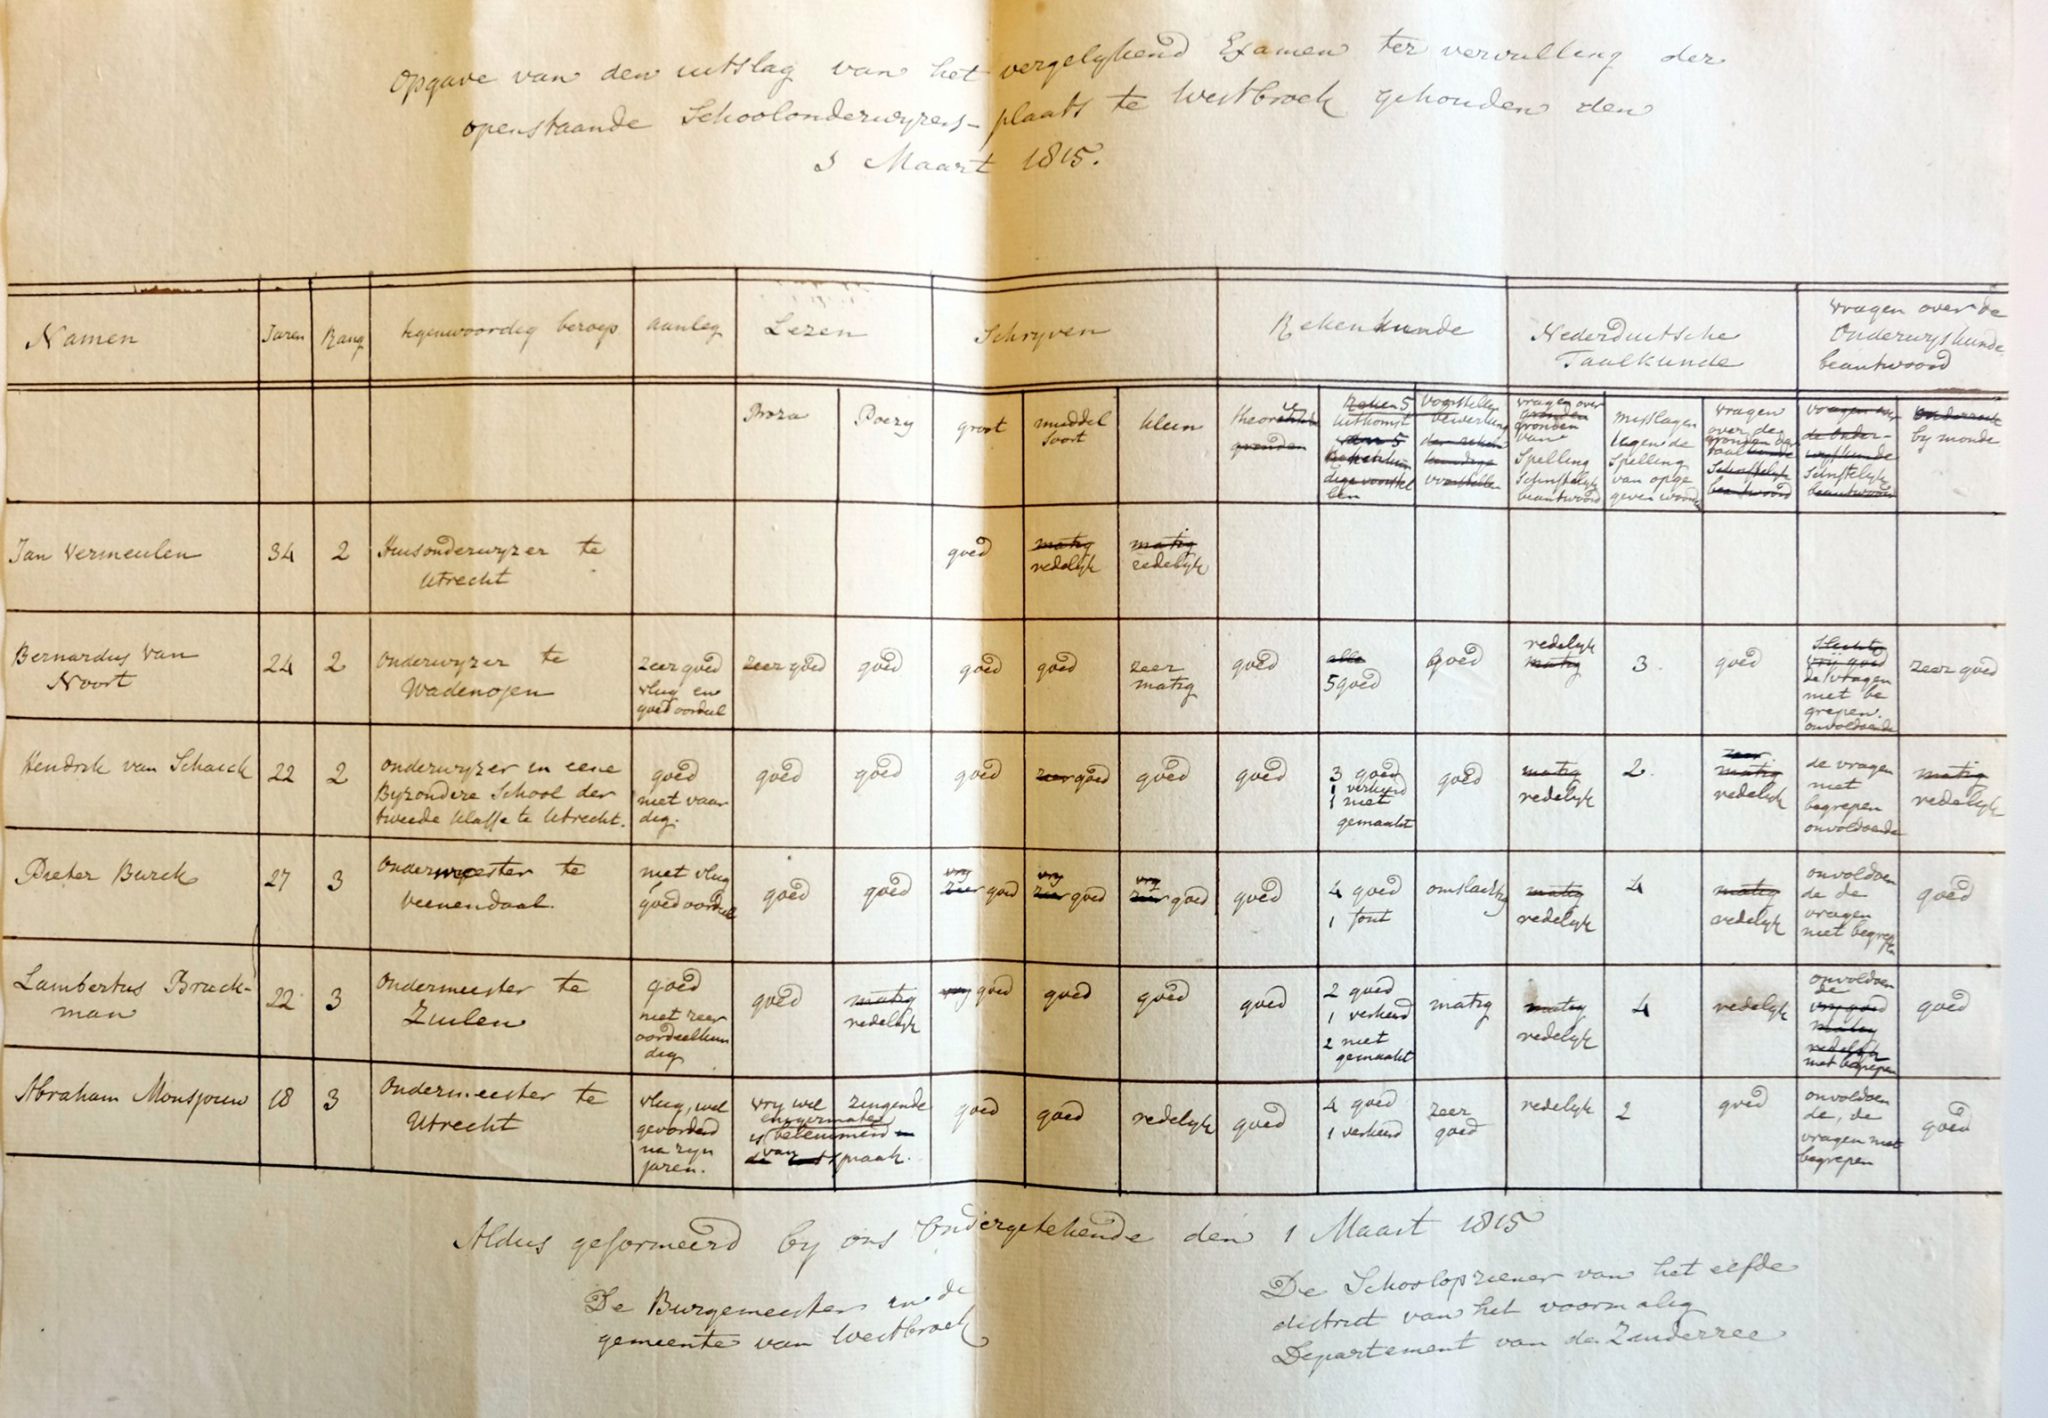 Opgave van den uitslag van het vergelykend Examen ter vervulling der
openstaande Schoolonderwyzers-plaats te Westbroek gehouden den
Maart 1815.
Namen Jaren Rang tegenwoordig beroep aanleg Lezen Schryven Rekenkunde Nederduitsche Taalkunde vragen over de Onderwyskunde beantwoord
Proza Poezy groot middel soort klein theorie uitkomst voorstellen bewerking vragen over gronden van spelling schriftelyk beantwoord misslagen tegen de spelling van opge geven woorden vragen over de gronden der taal schriftelyk by monde
Jan Vermeulen 34 2 Huisonderwyzer te Utrecht goed matig redelyk matig redelyk
Bernardus van Noort 24 2 Onderwyzer te Wadenojen zeer goed vlug en goed oordeel zeer goed goed goed goed zeer matig goed alle 5 goed goed redelyk matig 3. goed slechts vry goed de vragen niet be grepen. onvoldoende zeer goed
Hendrik van Schaick 22 2 onderwyzer in eene Byzondere School der tweede klasse te Utrecht. goed niet vaar dig. goed goed goed zeer goed goed goed 3 goed 1 verkeerd 1 niet gemaakt goed matig redelyk 2. zeer matig redelyk de vragen niet begrepen onvoldoende matig redelyk
Pieter Burck 27 3 Ondermeester te Veenendaal. niet vlug, goed oordeel goed goed vry zeer goed vry zeer goed vry zeer goed goed 4 goed 1 fout omslachtig matig redelyk 4 matig redelyk onvoldoen de de vragen niet begrepen goed
Lambertus Bruckman 22 3 Ondermeester te Zuilen goed niet zeer oordeelkun dig goed matig redelyk vry goed goed goed goed 2 goed 1 verkeerd 2 niet gemaakt matig matig redelyk 4 redelyk onvoldoen de vry goed matig redelyk niet begrepen goed
Abraham Monsjouw 18 3 Ondermeester te Utrecht vlug, wel gevorderd na zyn jaren. vry wel zingende enigermate is belemmerd van spraak. goed goed redelyk goed 4 goed 1 verkeerd zeer goed redelyk 2 goed onvoldoen de, de vragen niet begrepen goed
Aldus geformeerd by ons Ondergetekende den 1 Maart 1815
De Burgemeester in de
gemeente van Westbroek
De Schoolopziener van het elfde
district van het voormalig
Departement van de Zuiderzee